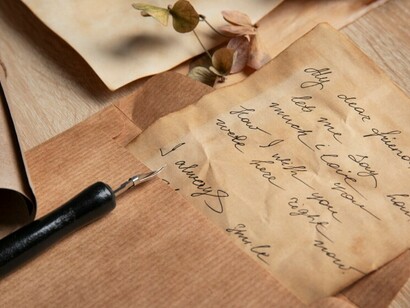 My dear friend
let me say how
much i love you
How I wish you
were her right now.
I always smile